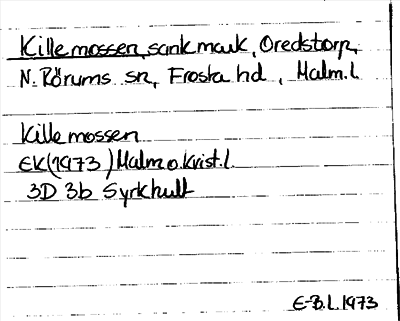 Killemossen, sankmark, Oredstorp,
N. Rörums sn, Frosta hd, Malm.l
Killemossen
EK(1973) Malm o. Krist.l
3D 3b Syrkhult
E-B.L. 1973